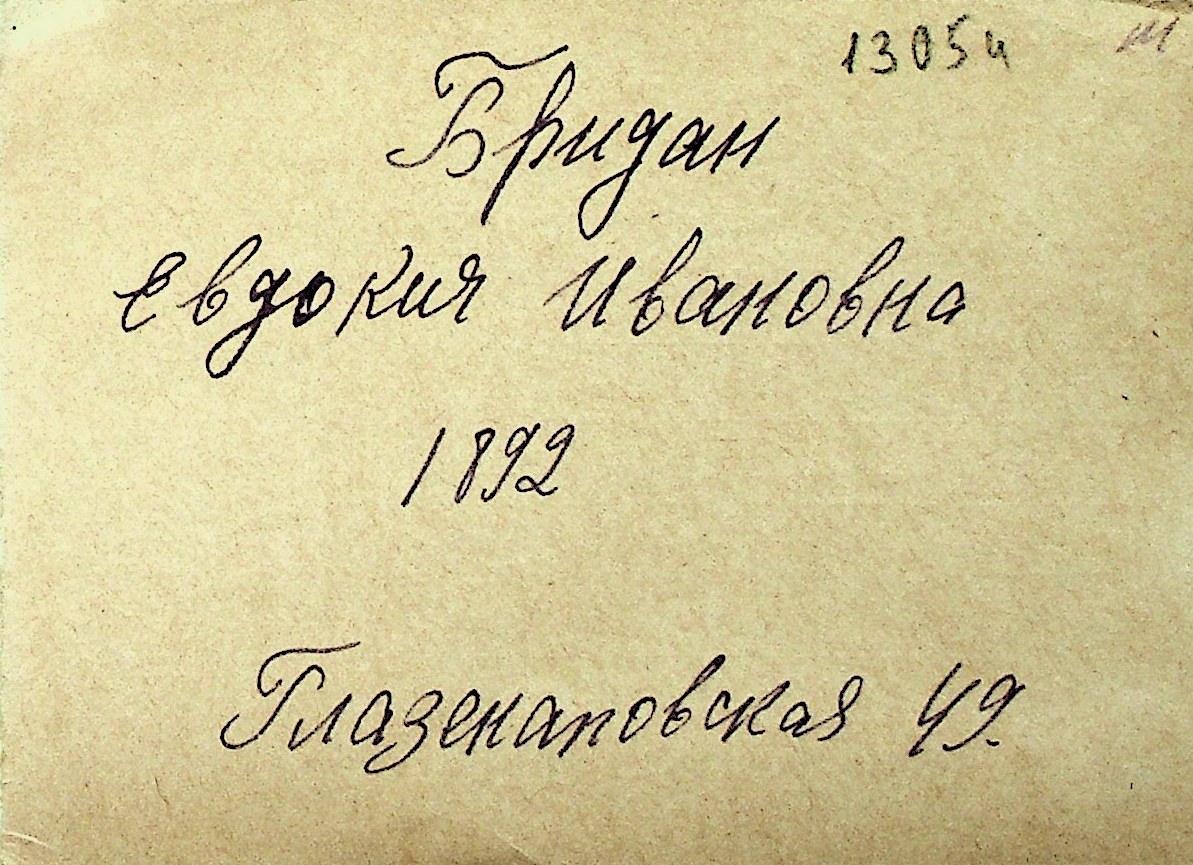 13054
Бридан
Евдокия Ивановна
1892
Глазенаповская 49.